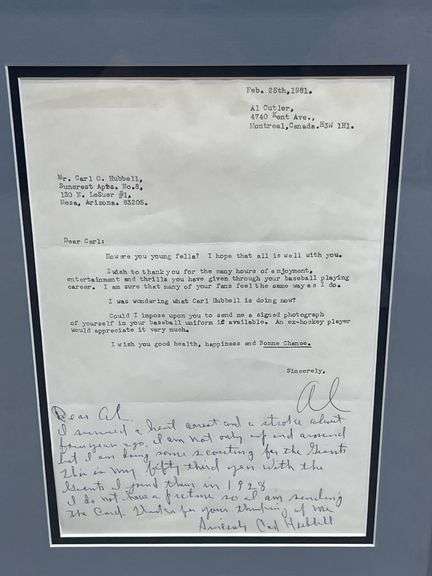 Feb. 25th,1981.
Al Cutler,
4740 Bont Ave.,
Montreal,Canada.H3W 1H1.
Mr. Carl O. Hubbell,
Suncrest Apts. No.8,
130 N. LeSuer #1,
Mesa, Arizona. 83205.
Dear Carl:
How are you young fella? I hope that all is well with you.
I wish to thank you for the many hours of enjoyment,
entertainment and thrills you have given through your baseball playing
career. I am sure that many of your fans feel the same way as I do.
I was wondering what Carl Hubbell is doing now?
Could I impose upon you to send me a signed photograph
of yourself in your baseball uniform if available. An ex-hockey player
would appreciate it very much.
I wish you good health, happiness and Bonne Chance.
Sincerely,
Al
Dear Al
I survived a heart arrest and a stroke about
four years ago. I am not only up and around
but I am doing some scouting for the Giants
This is my fifty third year with the
Giants I joined them in 1928
I do not have a picture so I am sending
the Card. Thanks for your thinking of me
Sincerely Carl Hubbell